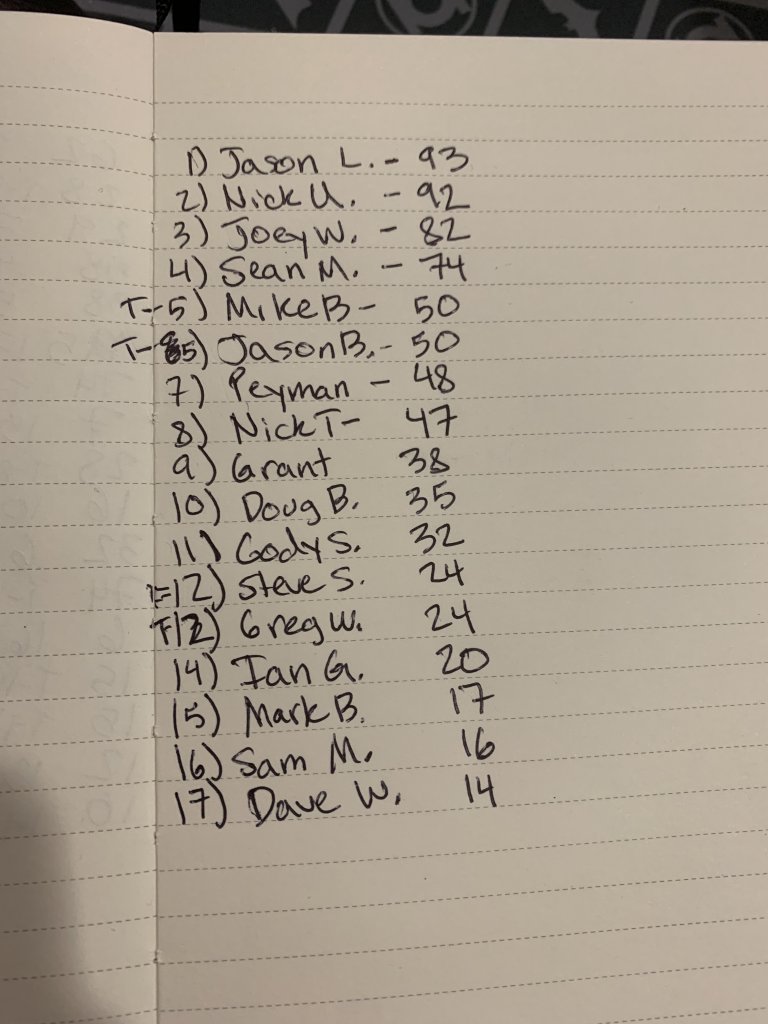 1) Jason L. - 93
2) Nick U. - 92
3) Joey W. - 82
4) Sean M. - 74
T-5) Mike B - 50
T-5) Jason B. - 50
7) Peyman - 48
8) Nick T - 47
9) Grant 38
10) Doug B. 35
11) Cody S. 32
T-12) Steve S. 24
T12) Greg W. 24
14) Ian G. 20
15) Mark B. 17
16) Sam M. 16
17) Dave W. 14